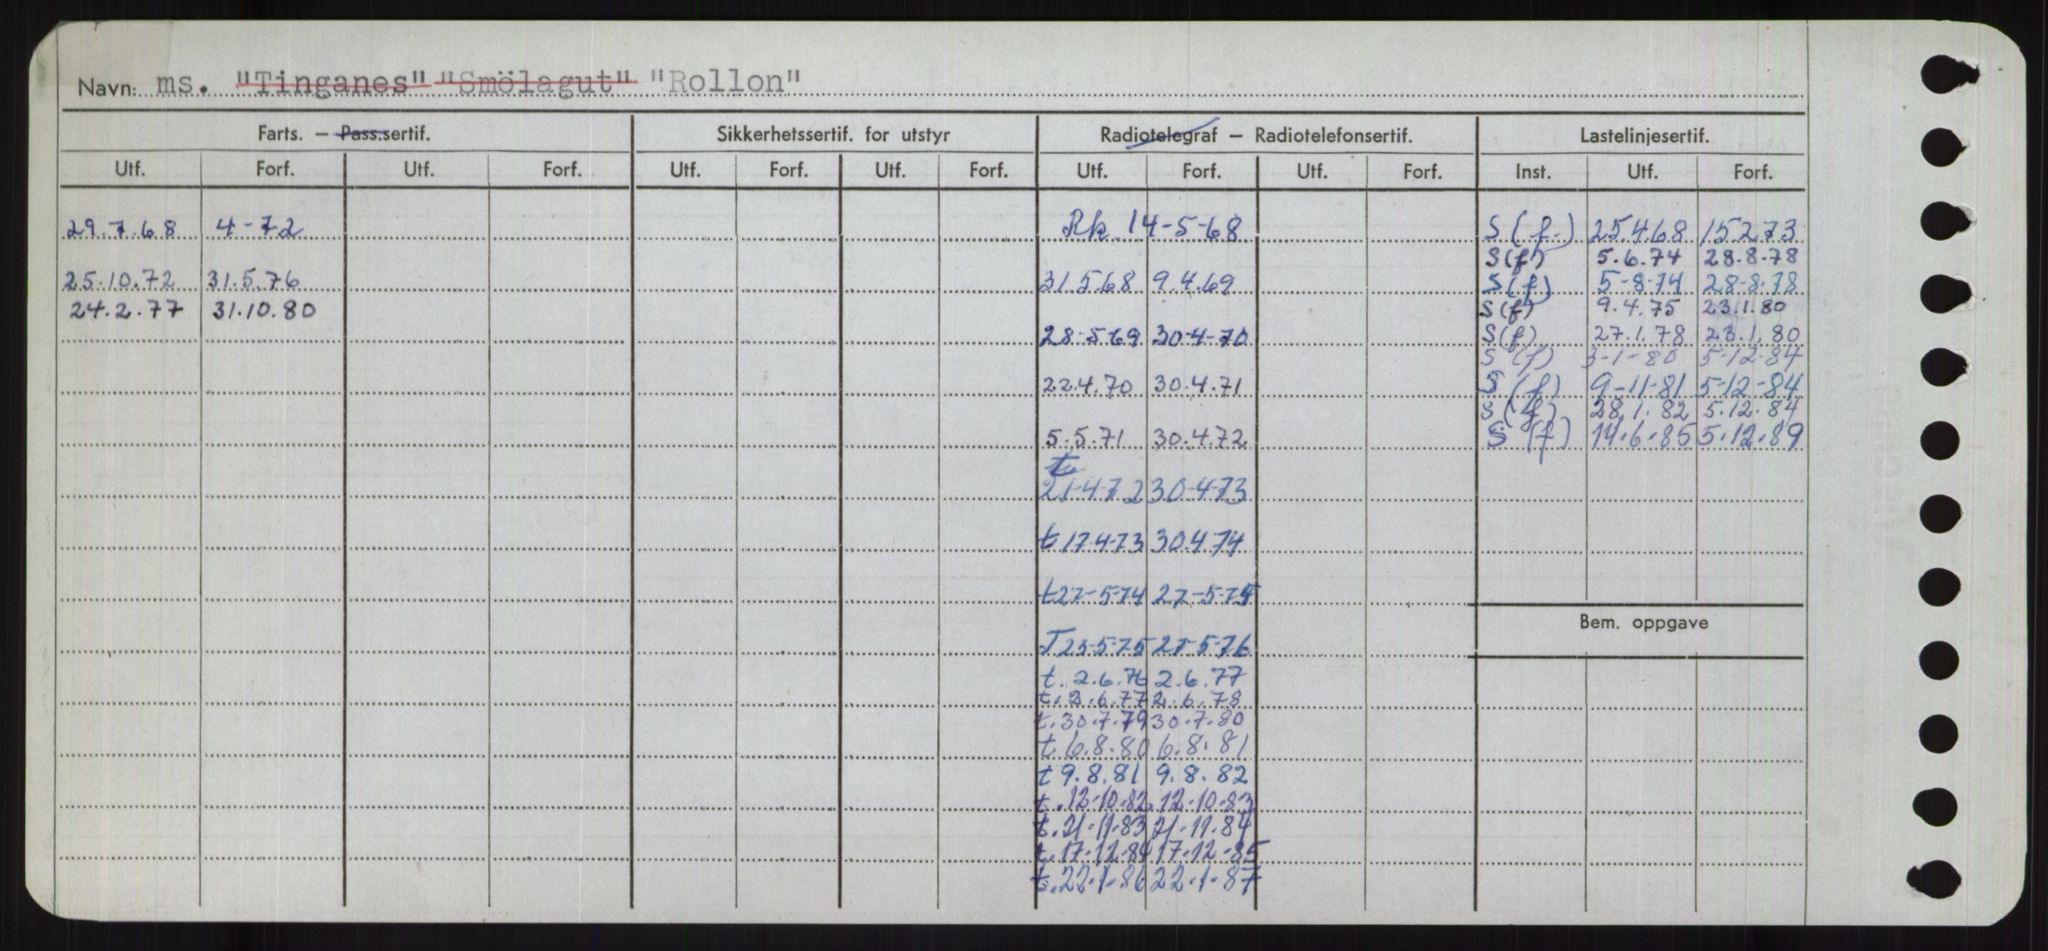 Navn: ms. "Tinganes" "Smölagut" "Rollon"
Farts. – Pass.sertif. Sikkerhetssertif. for utstyr Radiotelegraf – Radiotelefonsertif. Lastelinjesertif.
Utf. Forf. Utf. Forf. Utf. Forf. Utf. Forf. Utf. Forf. Utf. Forf. Inst. Utf. Forf.
29.7.68 4-72 Rk. 14-5-68 S(f.) 25.4.68 15.2.73
S(f) 5.6.74 28.8.78
25.10.72 31.5.76 31.5.68 9.4.69 S(f) 5-8-74 28-8-78
24.2.77 31.10.80 S(f) 9.4.75 23.1.80
28.5.69 30-4-70 S(f) 27.1.78 23.1.80
S(f) 3-1-80 5-12-84
22.4.70 30.4.71 S(f) 9-11-81 5-12-84
S(f) 28.1.82 5.12.84
5.5.71 30.4.72 S(f) 14.6.85 5.12.89
t
21-4-72 30-4-73
t 17-4-73 30.4.74
t 27-5-74 27-5-75
Bem. oppgave
T 23-5-75 27-5-76
t. 2.6.76 2.6.77
t. 2.6.77 2.6.78
t. 30.7.79 30.7.80
t. 6.8.80 6.8.81
t 9.8.81 9.8.82
t. 12-10-82 12-10-83
t. 21-11-83 21-11-84
t. 17-12-84 17-12-85
t. 22-1-86 22-1-87